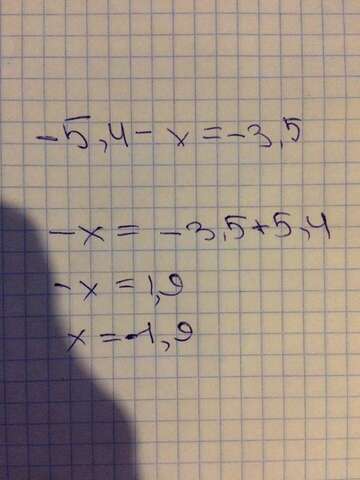 -5,4-x=-3,5
-x=-3,5+5,4
-x=1,9
x=-1,9